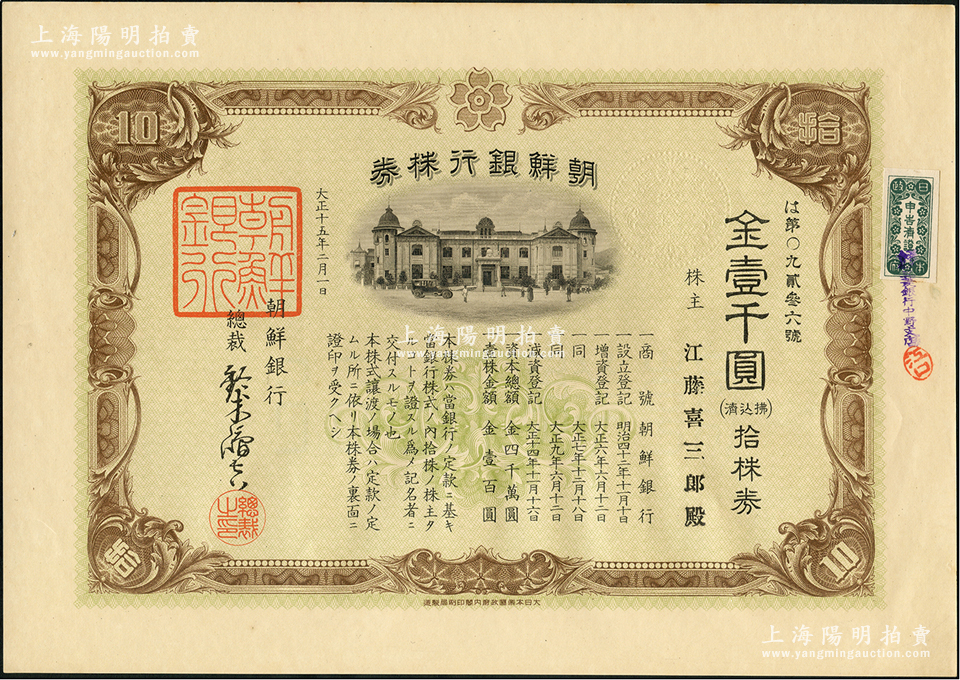 上海陽明拍賣
www.yangmingauction.com
10
拾
朝鮮銀行株券
は第〇九貳參六號
金壹千圓(拂込濟)拾株券
株主 江藤喜三郎殿
一商號 朝鮮銀行
一設立登記 明治四十二年十一月十日
一增資登記 大正六年六月十二日
一同 大正七年十二月十八日
一同 大正九年六月十二日
一減資登記 大正十四年十一月十六日
一資本總額 金四千萬圓
一壹株金額 金壹百圓
本株券ハ當銀行ノ定款ニ基キ
當銀行株式ノ內拾株ノ株主タ
ルコトヲ證スル爲メ記名者ニ
交付スルモノ也
本株式讓渡ノ場合ハ定款ノ定
ムル所ニ依リ本株券ノ裏面ニ
證印ヲ受クヘシ
大正十五年二月一日
朝鮮銀行
總裁
朝鮮銀行
總裁之印
申告濟證
拾
10
大日本帝國政府內閣印刷局製造
上海陽明拍賣
www.yangmingauction.com
上海陽明拍賣
www.yangmingauction.com